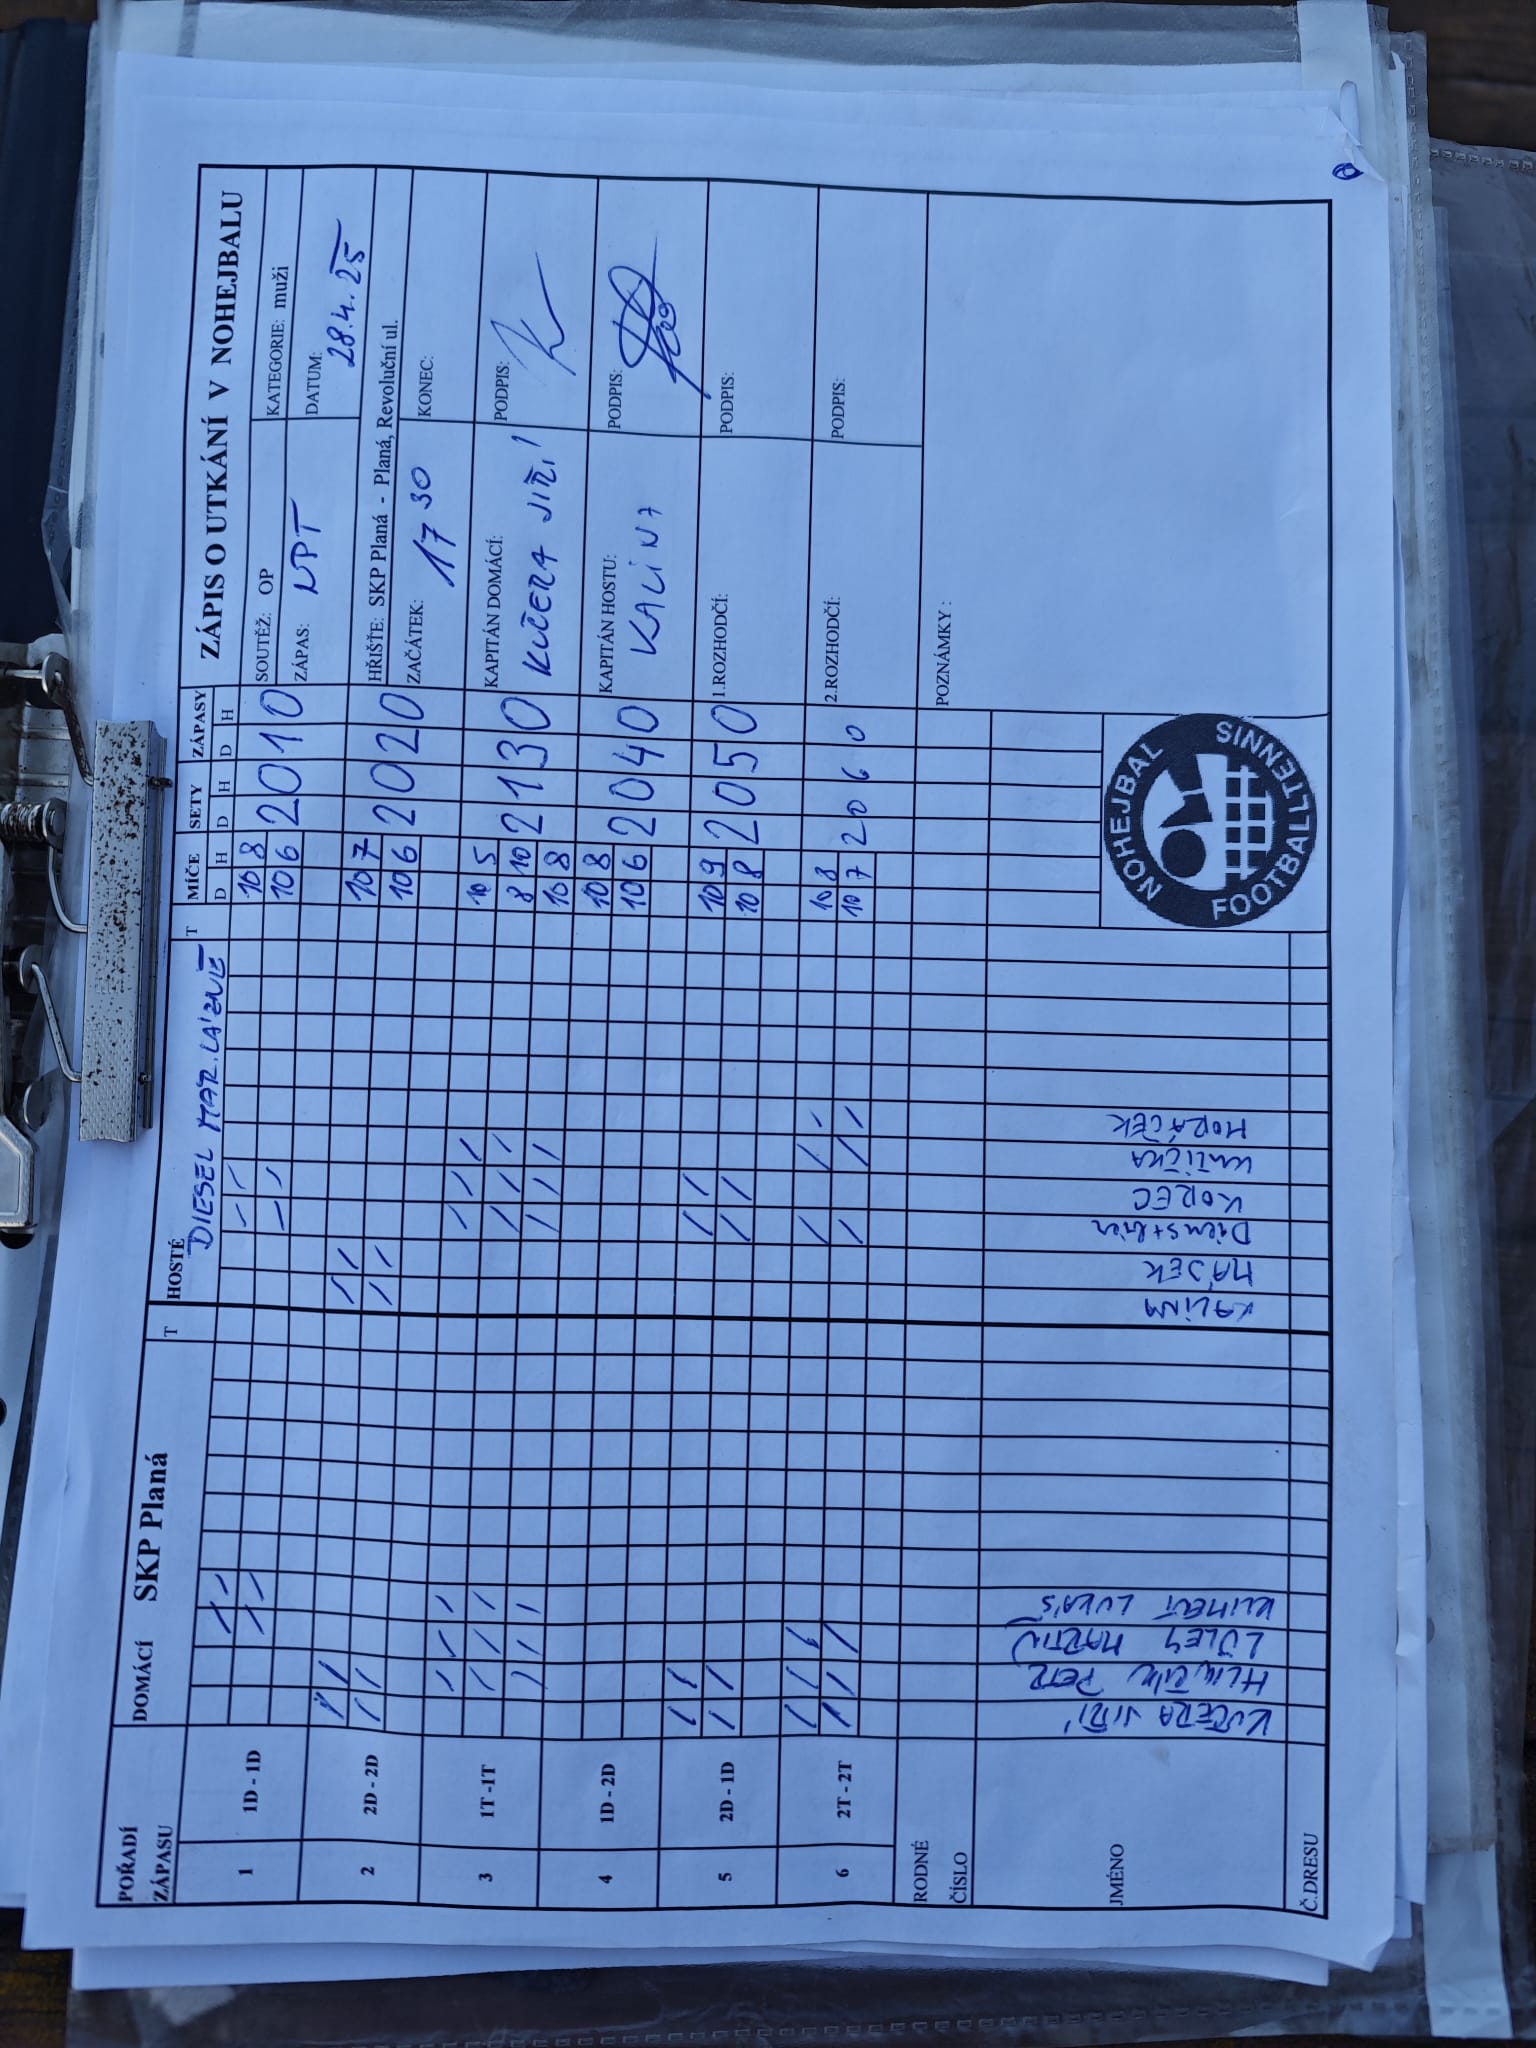 POŘADÍ ZÁPASU DOMÁCÍ SKP Planá T HOSTÉ DIESEL MAR. LÁZNĚ T MÍČE SETY ZÁPASY
D H D H D H
1 1D - 1D 10 8 2 0 1 0
10 6
2 2D - 2D 10 7 2 0 2 0
10 6
3 1T -1T 10 5 2 1 3 0
8 10
10 8
4 1D - 2D 10 8 2 0 4 0
10 6
5 2D - 1D 10 9 2 0 5 0
10 8
6 2T - 2T 10 8 2 0 6 0
10 7
RODNÉ ČÍSLO
JMÉNO
KUČERA JIŘÍ
PETR
LÜLEY MARTIN
KLIMENT LUKÁŠ
KALINA
MÁJEK
KOREC
HORÁČEK
Č.DRESU
ZÁPIS O UTKÁNÍ V NOHEJBALU
SOUTĚŽ: OP KATEGORIE: muži
ZÁPAS: NPT DATUM: 28.4.25
HŘIŠTE: SKP Planá - Planá, Revoluční ul.
ZAČÁTEK: 17 30 KONEC:
KAPITÁN DOMÁCÍ: KUČERA JIŘÍ PODPIS:
KAPITÁN HOSTU: KALINA PODPIS:
1.ROZHODČÍ: PODPIS:
2.ROZHODČÍ: PODPIS:
POZNÁMKY :
NOHEJBAL
FOOTBALLTENNIS